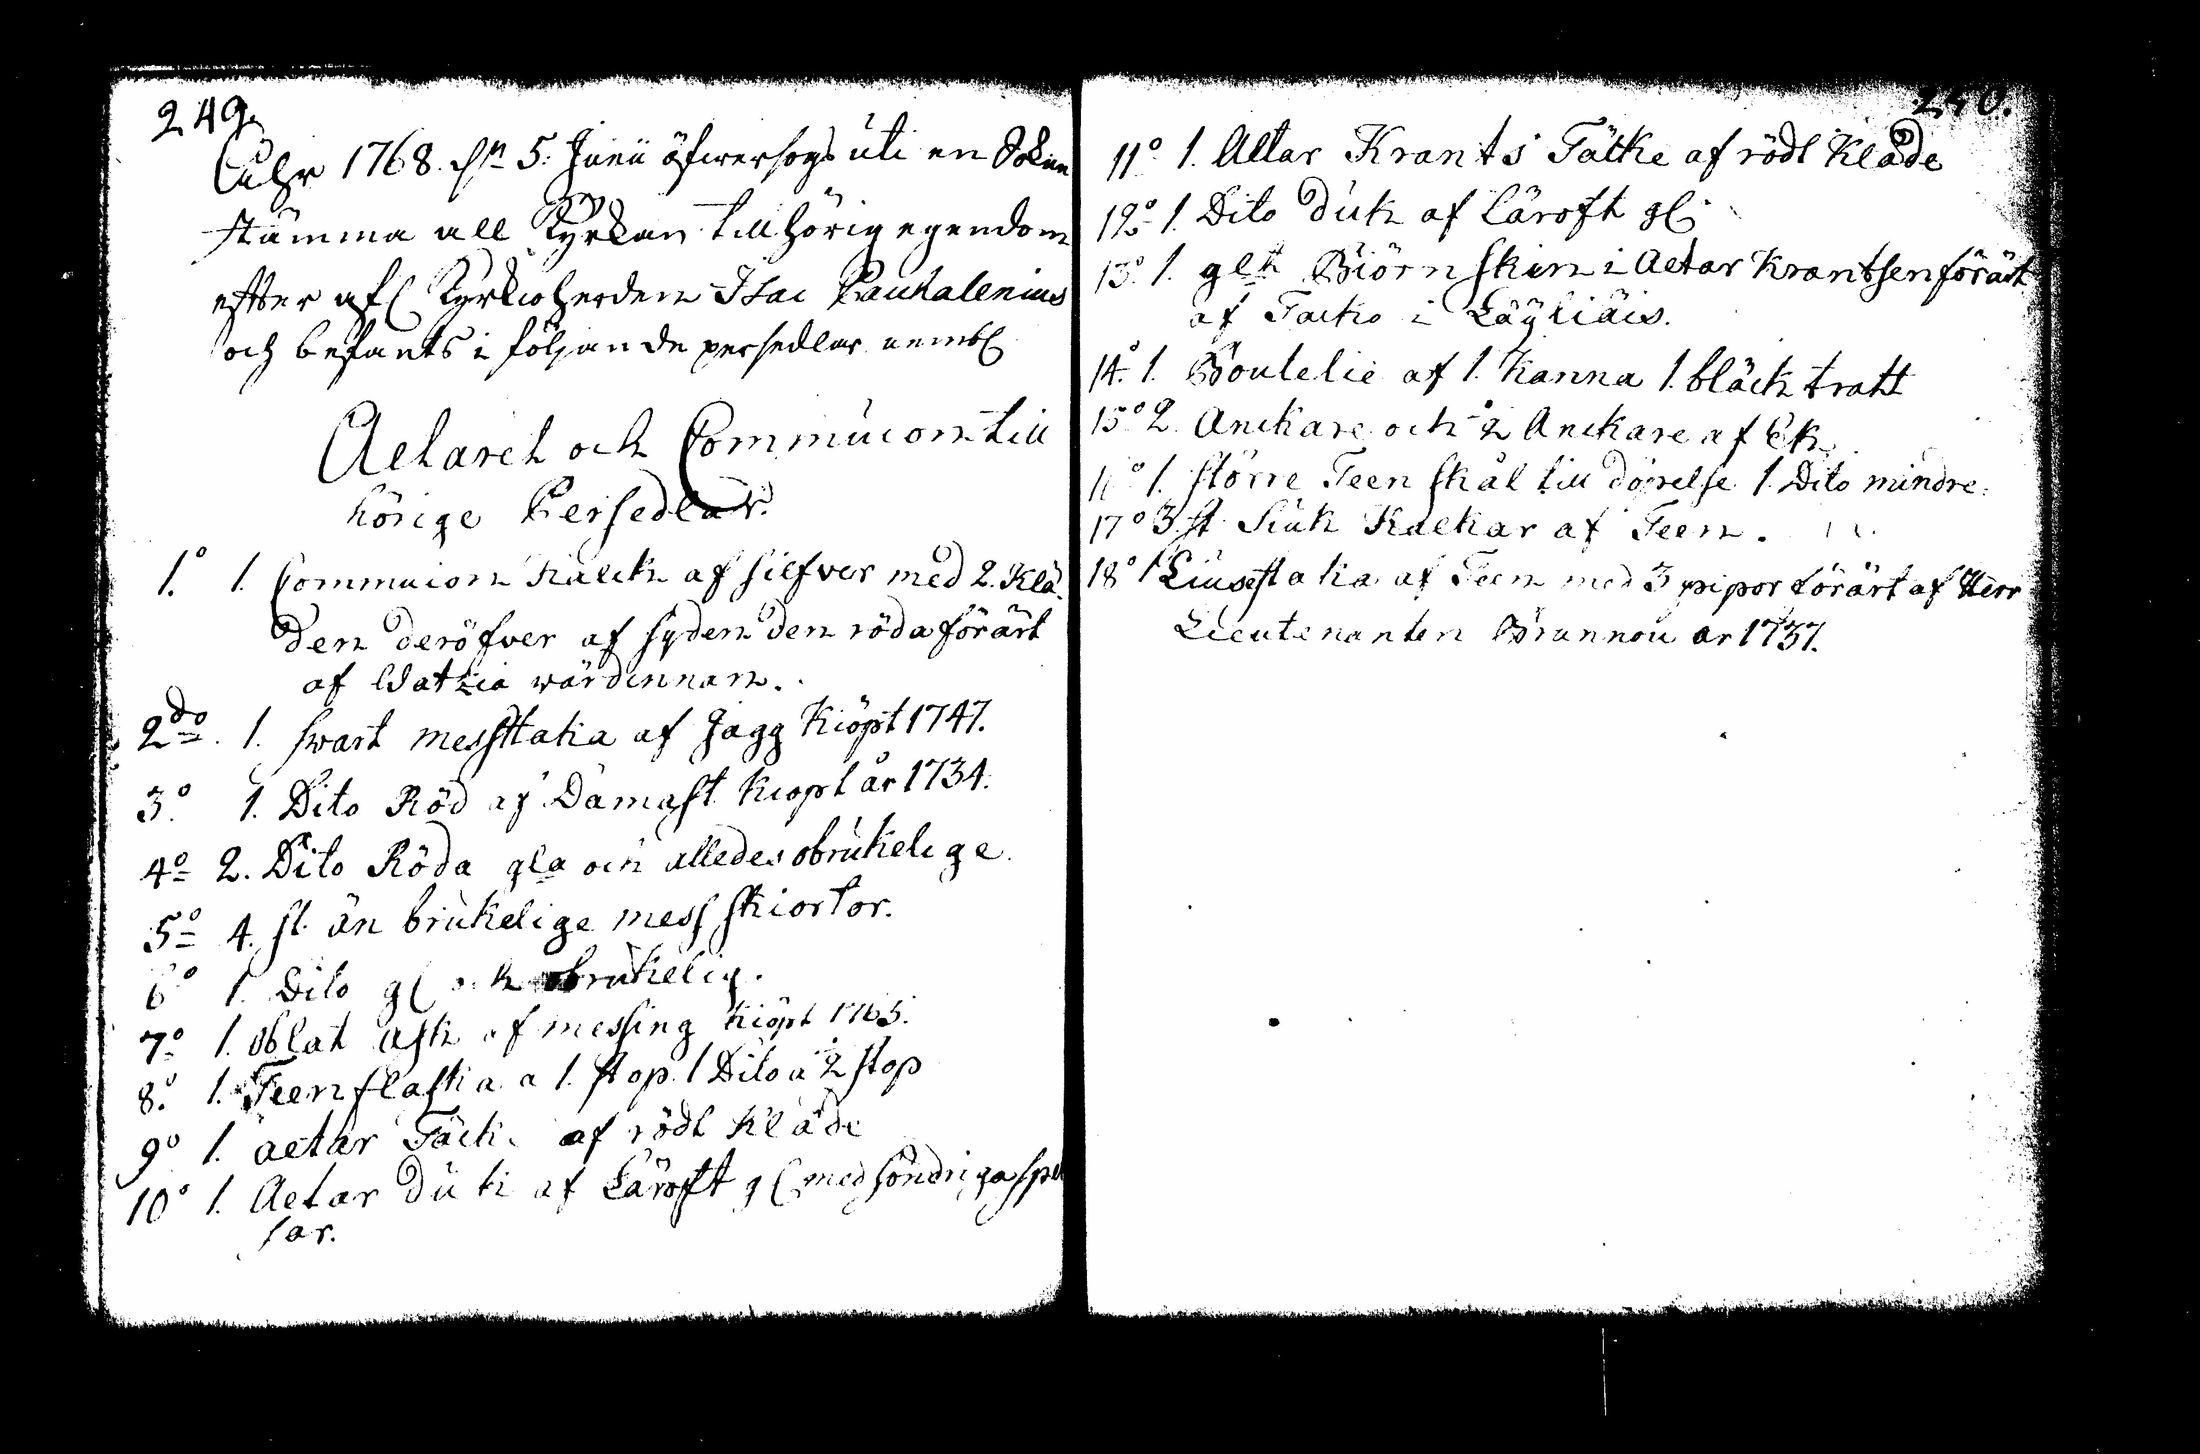 249.
Åhr 1768. dn 5. Junii öfwersogs uti en Sokne
stämma all Kyrkan tillhörig egendom
efter afl Kyrkioherden Isac Paukalenius
och befants i följande persedlar nembl
Aetaret och Commuiom till
hörige Persedlar.
1.o 1. Commuion Kalck af silfver med 2. Klä
den deröfver af syden den röda förärt
af Watkia wärdinnam.
2do. 1. swart messstaka af Jagg Kiöpt 1747.
3.o 1. Dito Röd af Damast Kiopt år 1734.
4o 2. Dito Röda gla och alledes obrukelige.
5o 4. st. än brukelige mess skiortor.
6o 1. Dito gl och obrukelig.
7o 1. oblat ask af messing Kiöpt 1765.
8.o 1. Teenflaska a 1. stop. 1 Dito a 2 stop
9o 1. aetar Täcke af rödt Kläde
10o 1. Aetar Duk af Läroft gl med söndriga spet
sar.
240.
11o 1. Altar Krants Tätke af rödt Kläde
12o 1. Dito duk af Läroft gl
13.o 1. glt Biörnskin i Aetar Krantsen förärt
af Tacko i Läyliäis.
14.o 1. Boutelie af 1. Kanna 1. bläck tratt
15o 2. Anckare och 2 Anckare af Ek
1. större Teen skål till döpelse 1. Dito mindre.
17o 3 st. Siuk Kalkar af Teen.
18o 1 Liusestaka af Teen med 3 pipor förärt af Herr
Lieutenanten Brunnou år 1737.